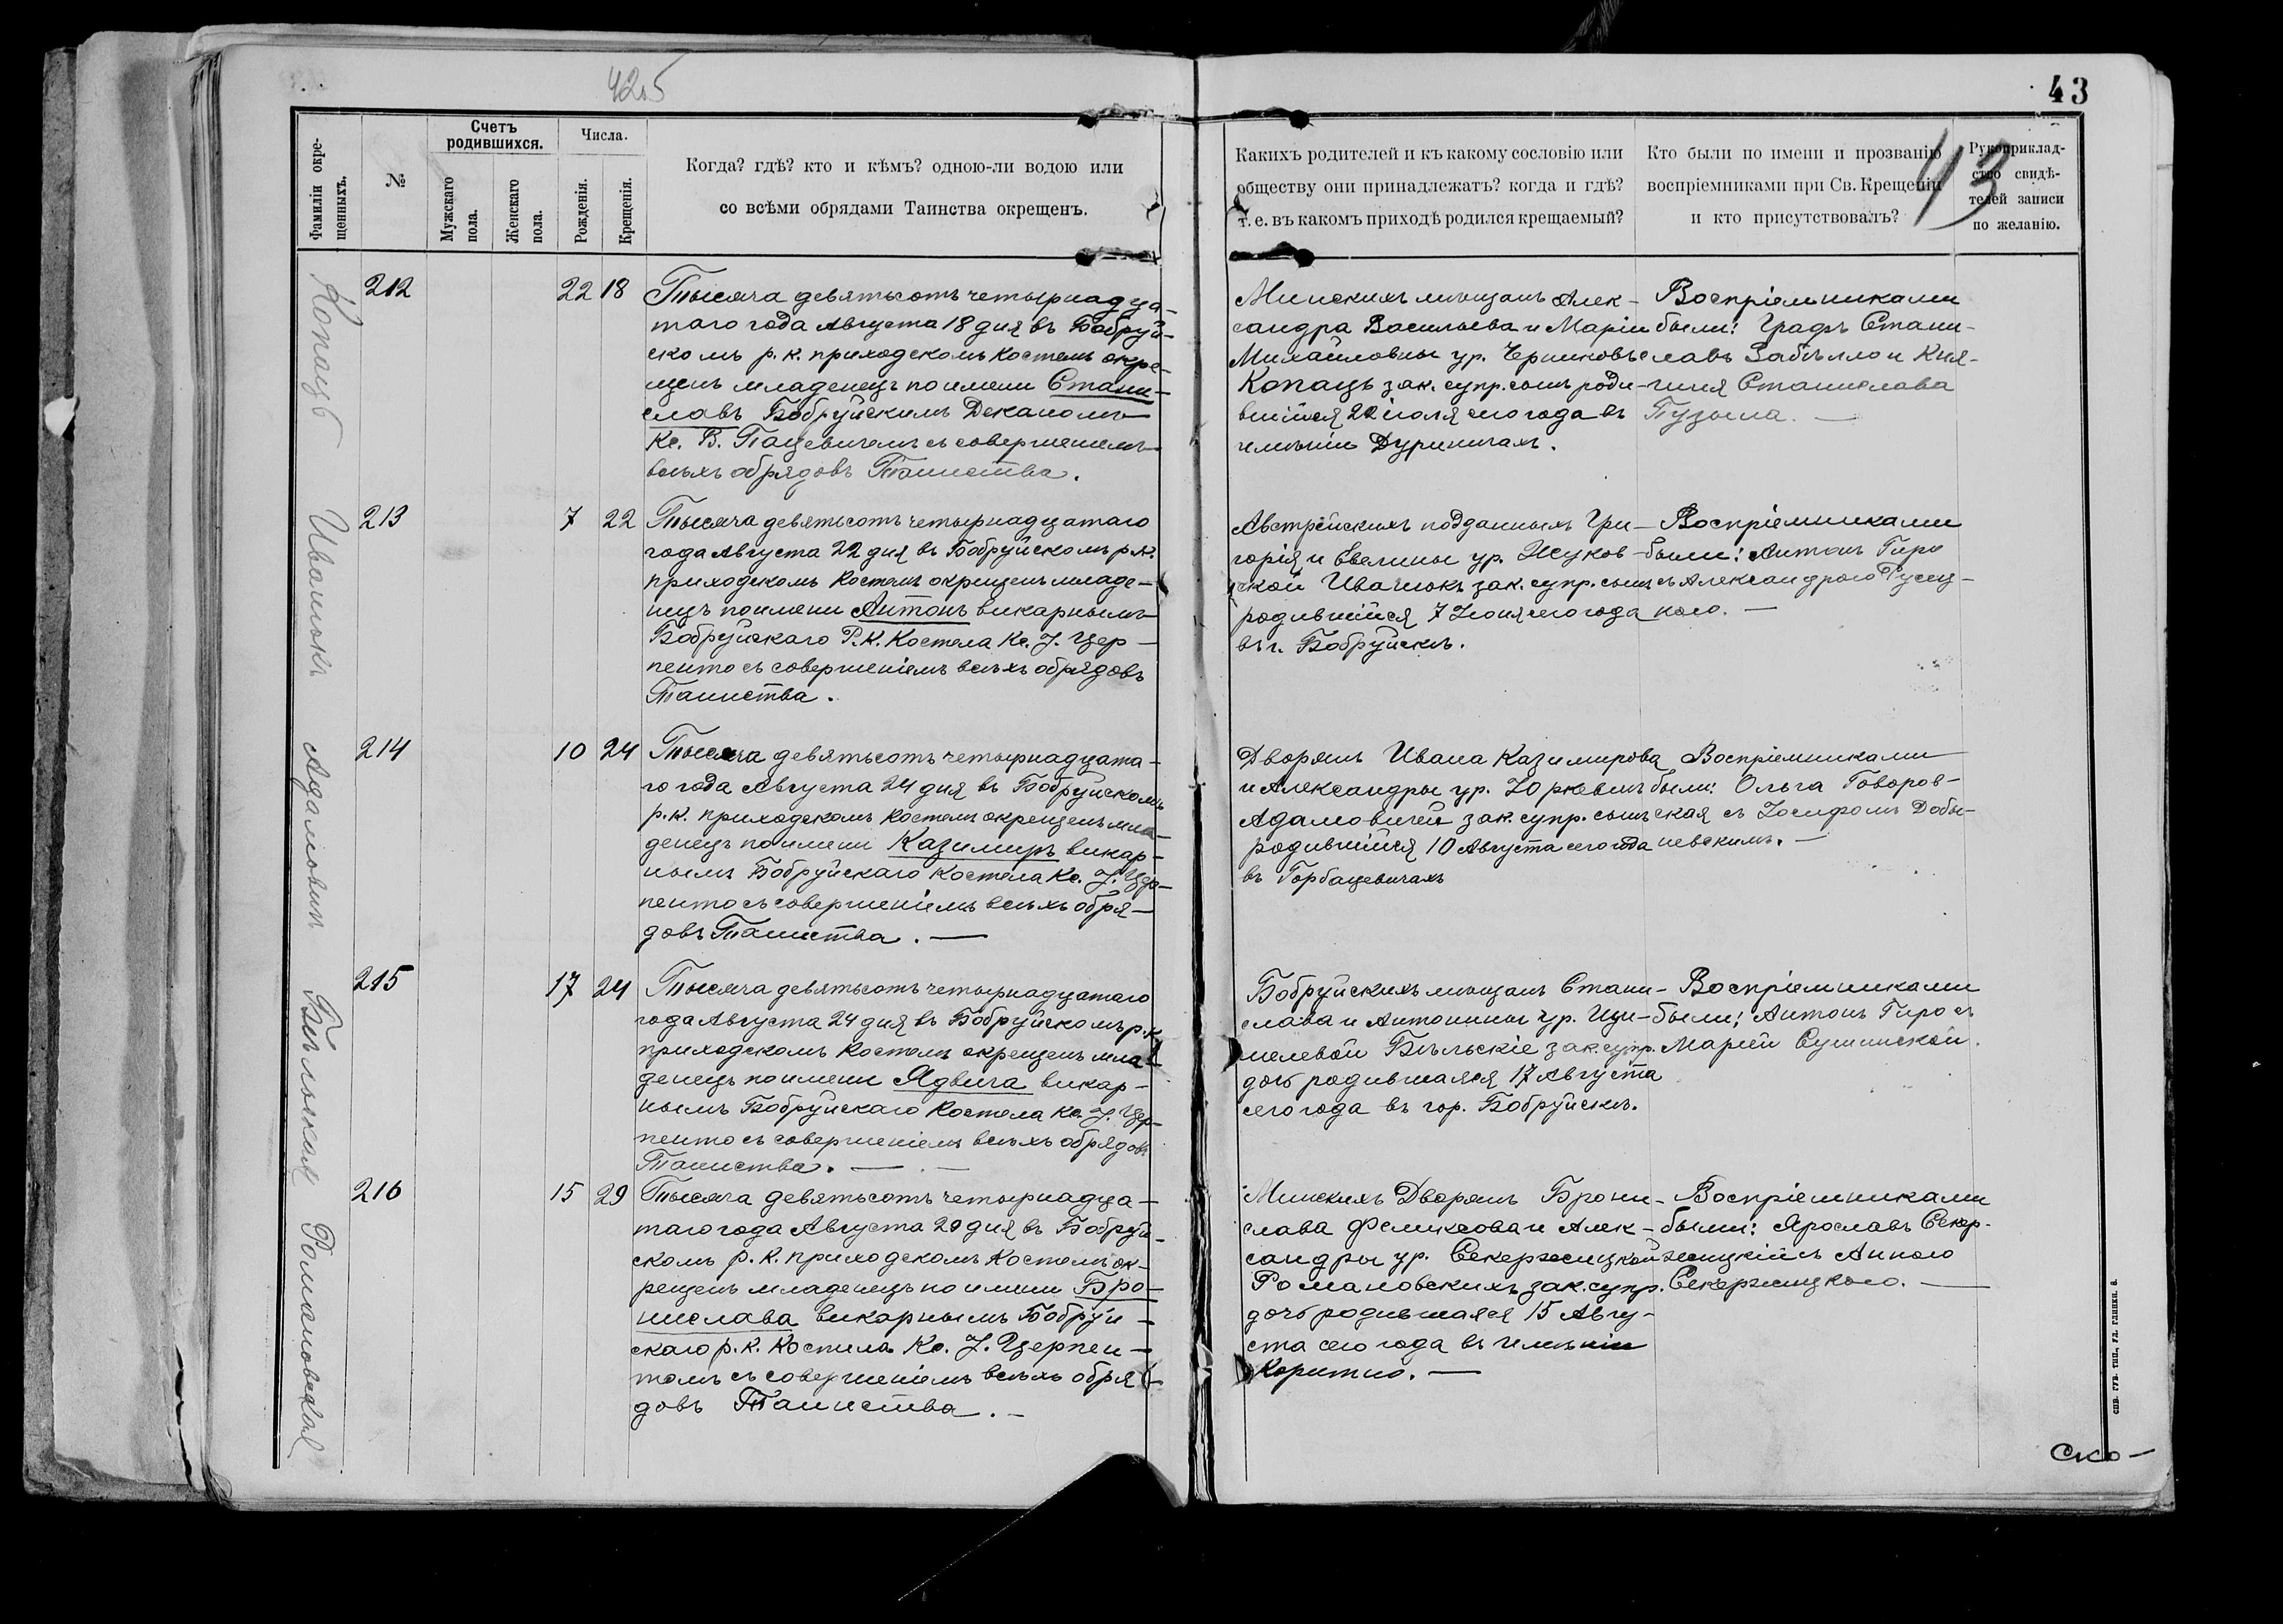 42,5
43
43
Фамиліи окре-
щенныхъ.
№
Счетъ
родившихся.
Мужскаго
пола.
Женскаго
пола.
Числа.
Рожденія.
Крещенія.
Когда? гдѣ? кто и кѣмъ? одною-ли водою или
со всѣми обрядами Таинства окрещенъ.
Какихъ родителей и къ какому сословію или
обществу они принадлежатъ? когда и гдѣ?
т. е. въ какомъ приходѣ родился крещаемый?
Кто были по имени и прозванію
воспріемниками при Св. Крещеніи
и кто присутствовалъ?
Рукоприклад-
ство свидѣ-
телей записи
по желанію.
Копацъ
212
22 18
Тысяча девятьсотъ четырнадца-
таго года Августа 18 дня въ Бобруй-
скомъ р. к. приходскомъ костелѣ окре-
щенъ младенецъ по имени Стани-
славъ Бобруйскимъ Деканомъ
Кс. В. Пацевичемъ съ совершеніемъ
всѣхъ обрядовъ Таинства.
Минскихъ мѣщанъ Алек-
сандра Васильева и Маріи
Михайловны ур. Черниковъ
Копацъ зак. супр. сынъ роди-
вшійся 22 іюля сего года въ
имѣніи Дуриничахъ.
Воспріемниками
были: Графъ Стани-
славъ Забѣлло и Кня-
гиня Станислава
Пузына. —
Иванюкъ
213
7 22
Тысяча девятьсотъ четырнадцатаго
года Августа 22 дня въ Бобруйскомъ р. к.
приходскомъ костелѣ окрещенъ младе-
нецъ по имени Антонъ викарнымъ
Бобруйскаго Р. К. Костела Кс. J. Цер-
пенто съ совершеніемъ всѣхъ обрядовъ
Таинства.
Австрійскихъ подданныхъ Гри-
горія и Евелины ур. Жуков-
ской Иванюкъ зак. супр. сынъ
родившійся 7 Іюня сего года
въ г. Бобруйскѣ.
Воспріемниками
были: Антонъ Гиро
съ Александрою Русец-
кою. —
Адамовичъ
214
10 24
Тысяча девятьсотъ четырнадцата-
го года Августа 24 дня въ Бобруйскомъ
р. к. приходскомъ костелѣ окрещенъ мла-
денецъ по имени Казимиръ викар-
нымъ Бобруйскаго Костела Кс. J. Цер-
пенто съ совершеніемъ всѣхъ обря-
довъ Таинства. —
Дворянъ Ивана Казимирова
и Александры ур. Юркевичъ
Адамовичей зак. супр. сынъ
родившійся 10 Августа сего года
въ Горбацевичахъ
Воспріемниками
были: Ольга Говоров-
ская съ Іосифомъ Добы-
невскимъ. —
Бѣльская
215
17 24
Тысяча девятьсотъ четырнадцатаго
года Августа 24 дня въ Бобруйскомъ р. к.
приходскомъ костелѣ окрещенъ мла-
денецъ по имени Ядвига викар-
нымъ Бобруйскаго Костела Кс. J. Цер-
пенто съ совершеніемъ всѣхъ обрядовъ
Таинства. —
Бобруйскихъ мѣщанъ Стани-
слава и Антонины ур.
Бѣльскіе зак. супр.
дочь родившаяся 17 Августа
сего года въ гор. Бобруйскѣ.
Воспріемниками
были: Антонъ Гиро съ
Маріей Сушинской.
Романовская
216
15 29
Тысяча девятьсотъ четырнадца-
таго года Августа 29 дня въ Бобруй-
скомъ р. к. приходскомъ костелѣ ок-
рещенъ младенецъ по имени Бро-
нислава викарнымъ Бобруй-
скаго р. к. Костела Кс. J. Церпен-
томъ съ совершеніемъ всѣхъ обря-
довъ Таинства. —
Минскихъ Дворянъ Брони-
слава Феликсова и Алек-
сандры ур. Секержицкой
Романовскихъ зак. супр.
дочь родившаяся 15 Авгу-
ста сего года въ имѣніи
Коритно. —
Воспріемниками
были: Ярославъ Секер-
жицкій съ Анною
Секержицкою. —
Ско-
спв. губ. тип., ул. глинки, 8.